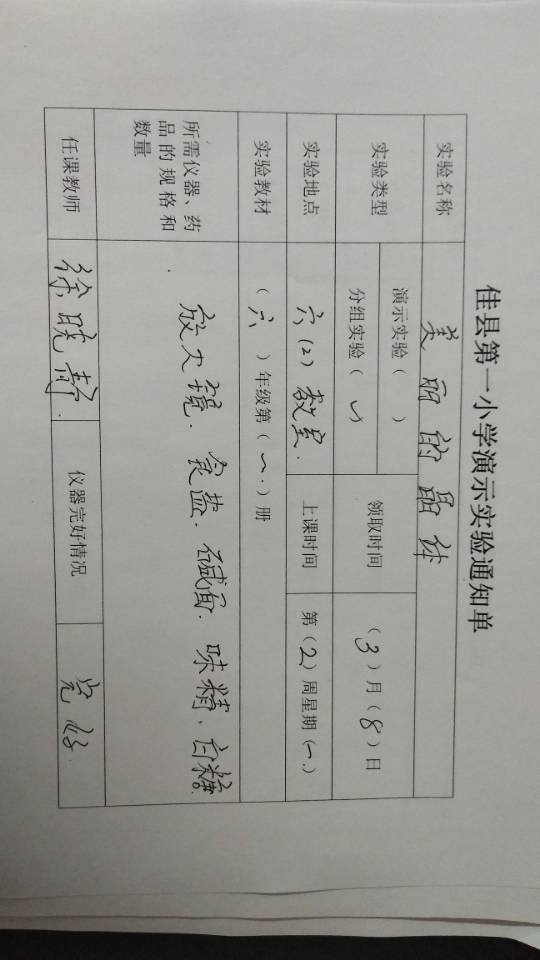 佳县第一小学演示实验通知单
实验名称 美丽的晶体
实验类型 演示实验（ ） 领取时间 （3）月（8）日
分组实验（✓）
实验地点 六（2）教室. 上课时间 第（2）周星期（一.）
实验教材 （六）年级第（一.）册
所需仪器、药
品的规格和
数量
放大镜. 食盐. 碱面. 味精、白糖.
任课教师 徐晓静. 仪器完好情况 完好